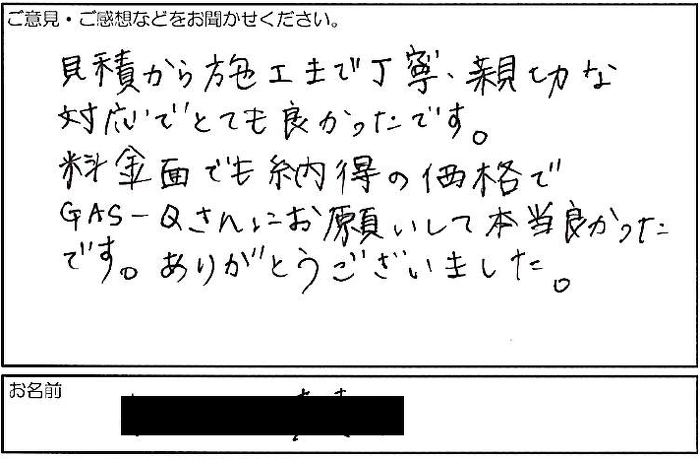 ご意見・ご感想などをお聞かせください。
見積から施工まで丁寧、親切な
対応でとても良かったです。
料金面でも納得の価格で
GAS-Qさんにお願いして本当良かった
です。ありがとうございました。
お名前